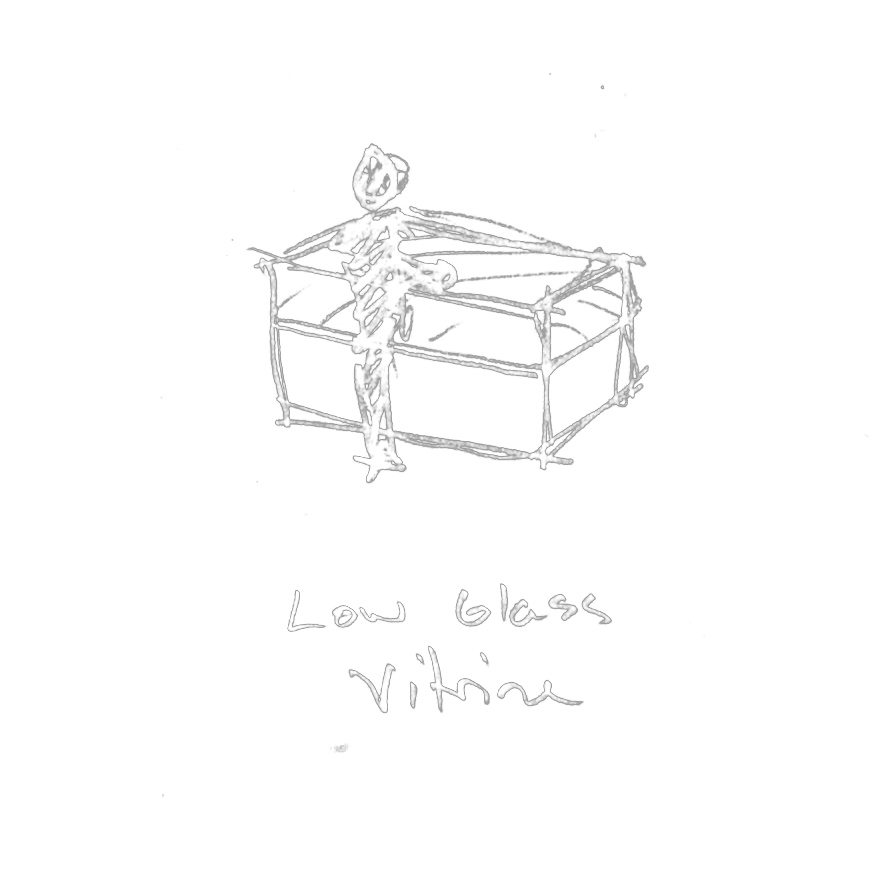 Low Glass
Vitrine